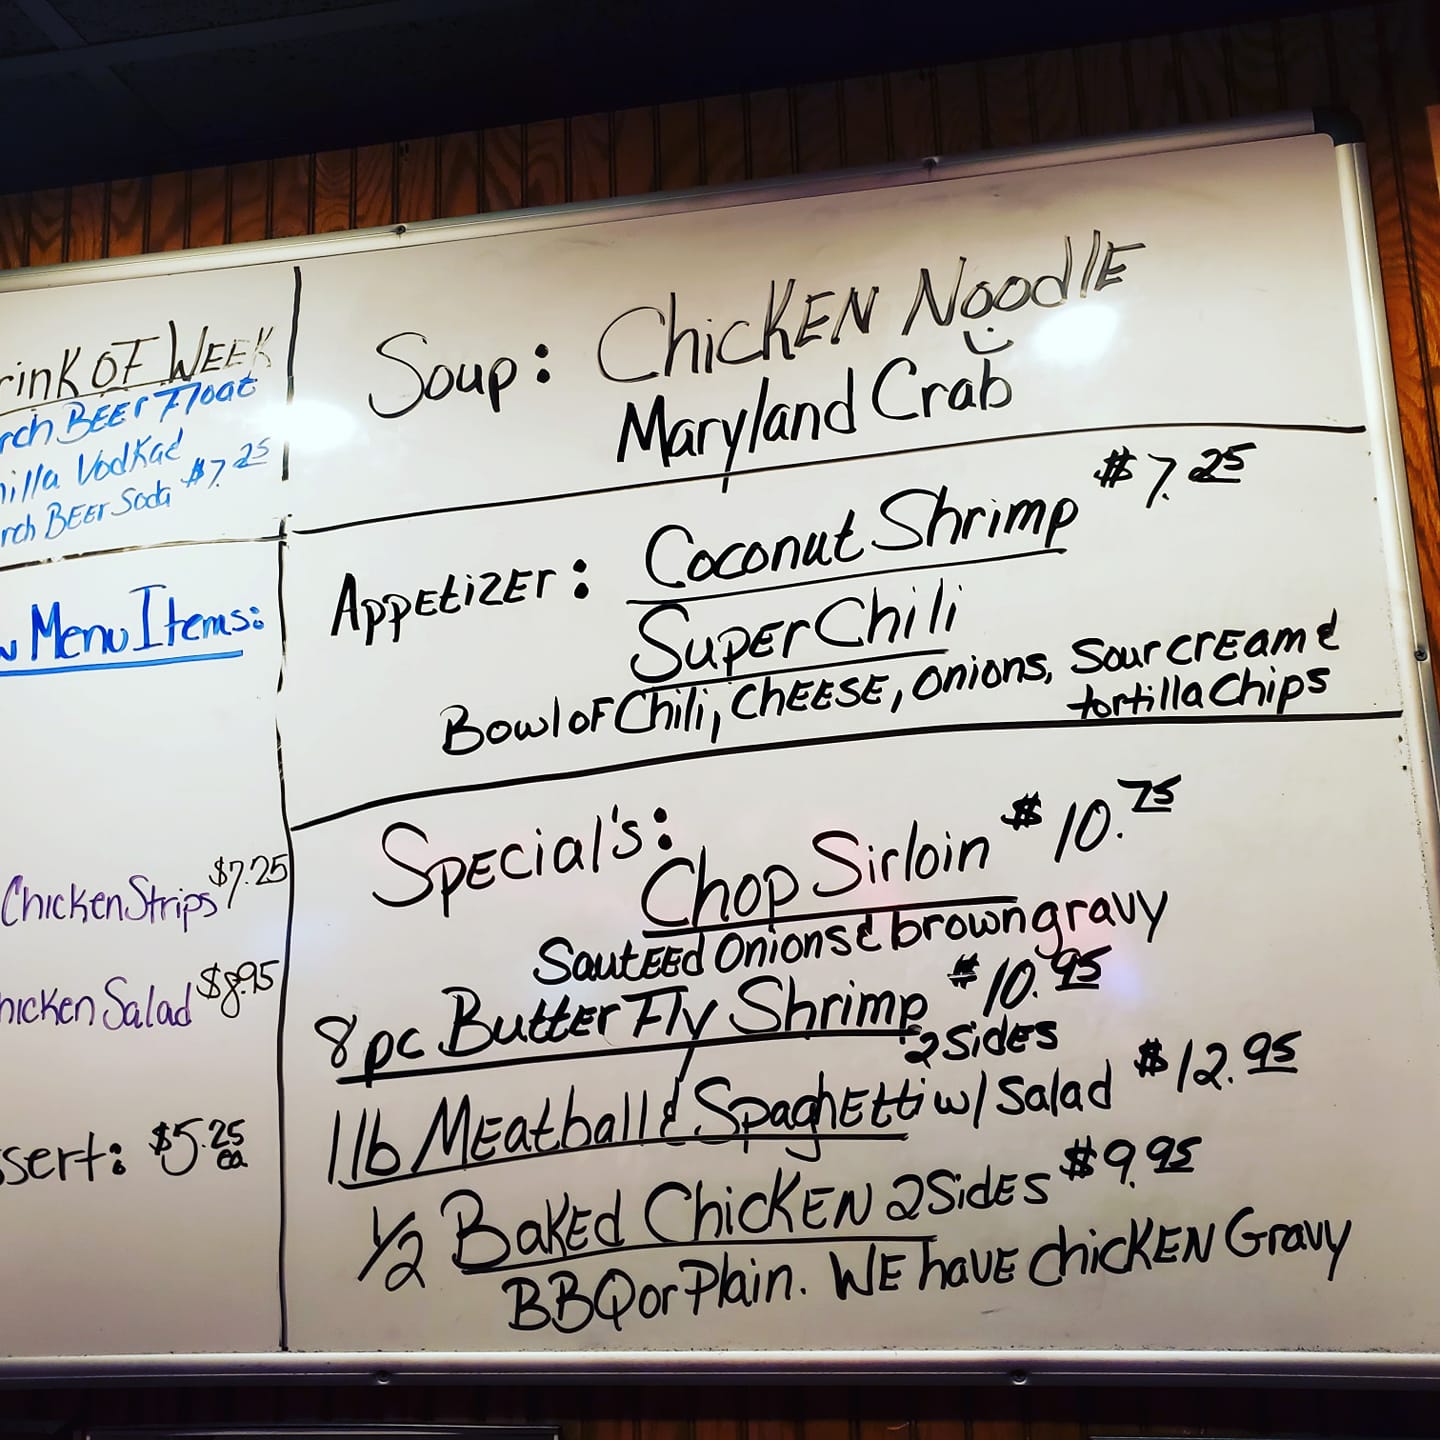 OF WEEK
BEER Float
Vodka
BEER Soda $7.25
Menu Items:
Chicken Strips $7.25
Salad $8.95
$5.25 ea
Soup: Chicken Noodle
Maryland Crab
Appetizer: Coconut Shrimp $7.25
Super Chili
Bowl of Chili, Cheese, Onions, Sour cream &
tortilla Chips
Special's:
Chop Sirloin $10.75
Sauteed Onions & brown gravy
8pc. Butter Fly Shrimp $10.95
2 Sides
1 lb Meatball & Spaghetti w/ Salad $12.95
1/2 Baked Chicken 2 Sides $9.95
BBQ or Plain. We have chicken Gravy